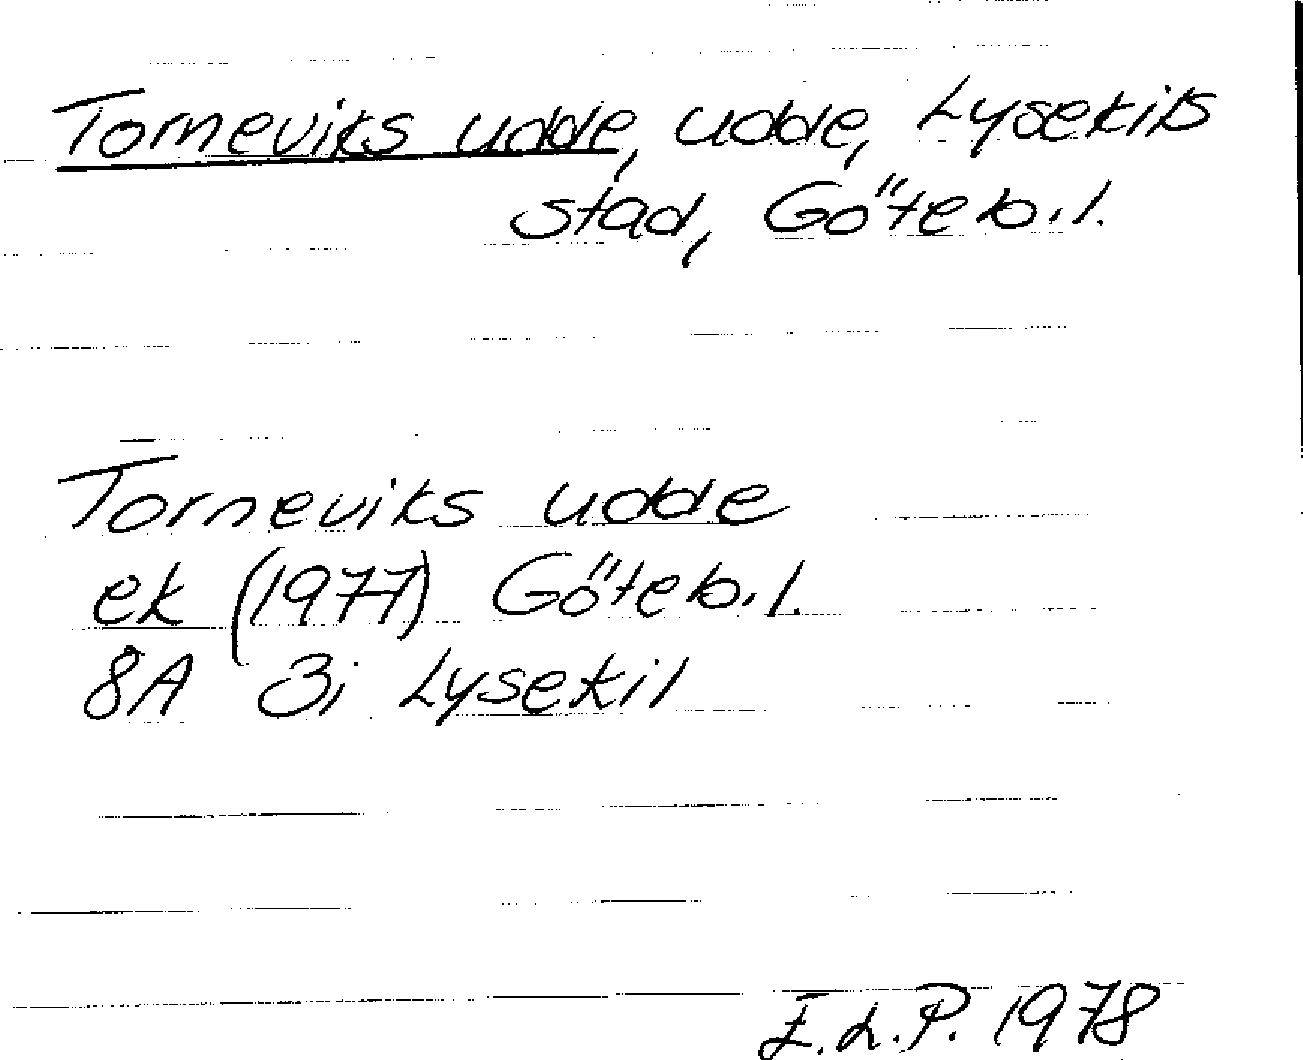 Torneviks udde, udde, Lysekils
stad, Göteb.l.
Torneviks udde
ek (1977) Göteb.l.
8A 3i Lysekil
E.L.P. 1978